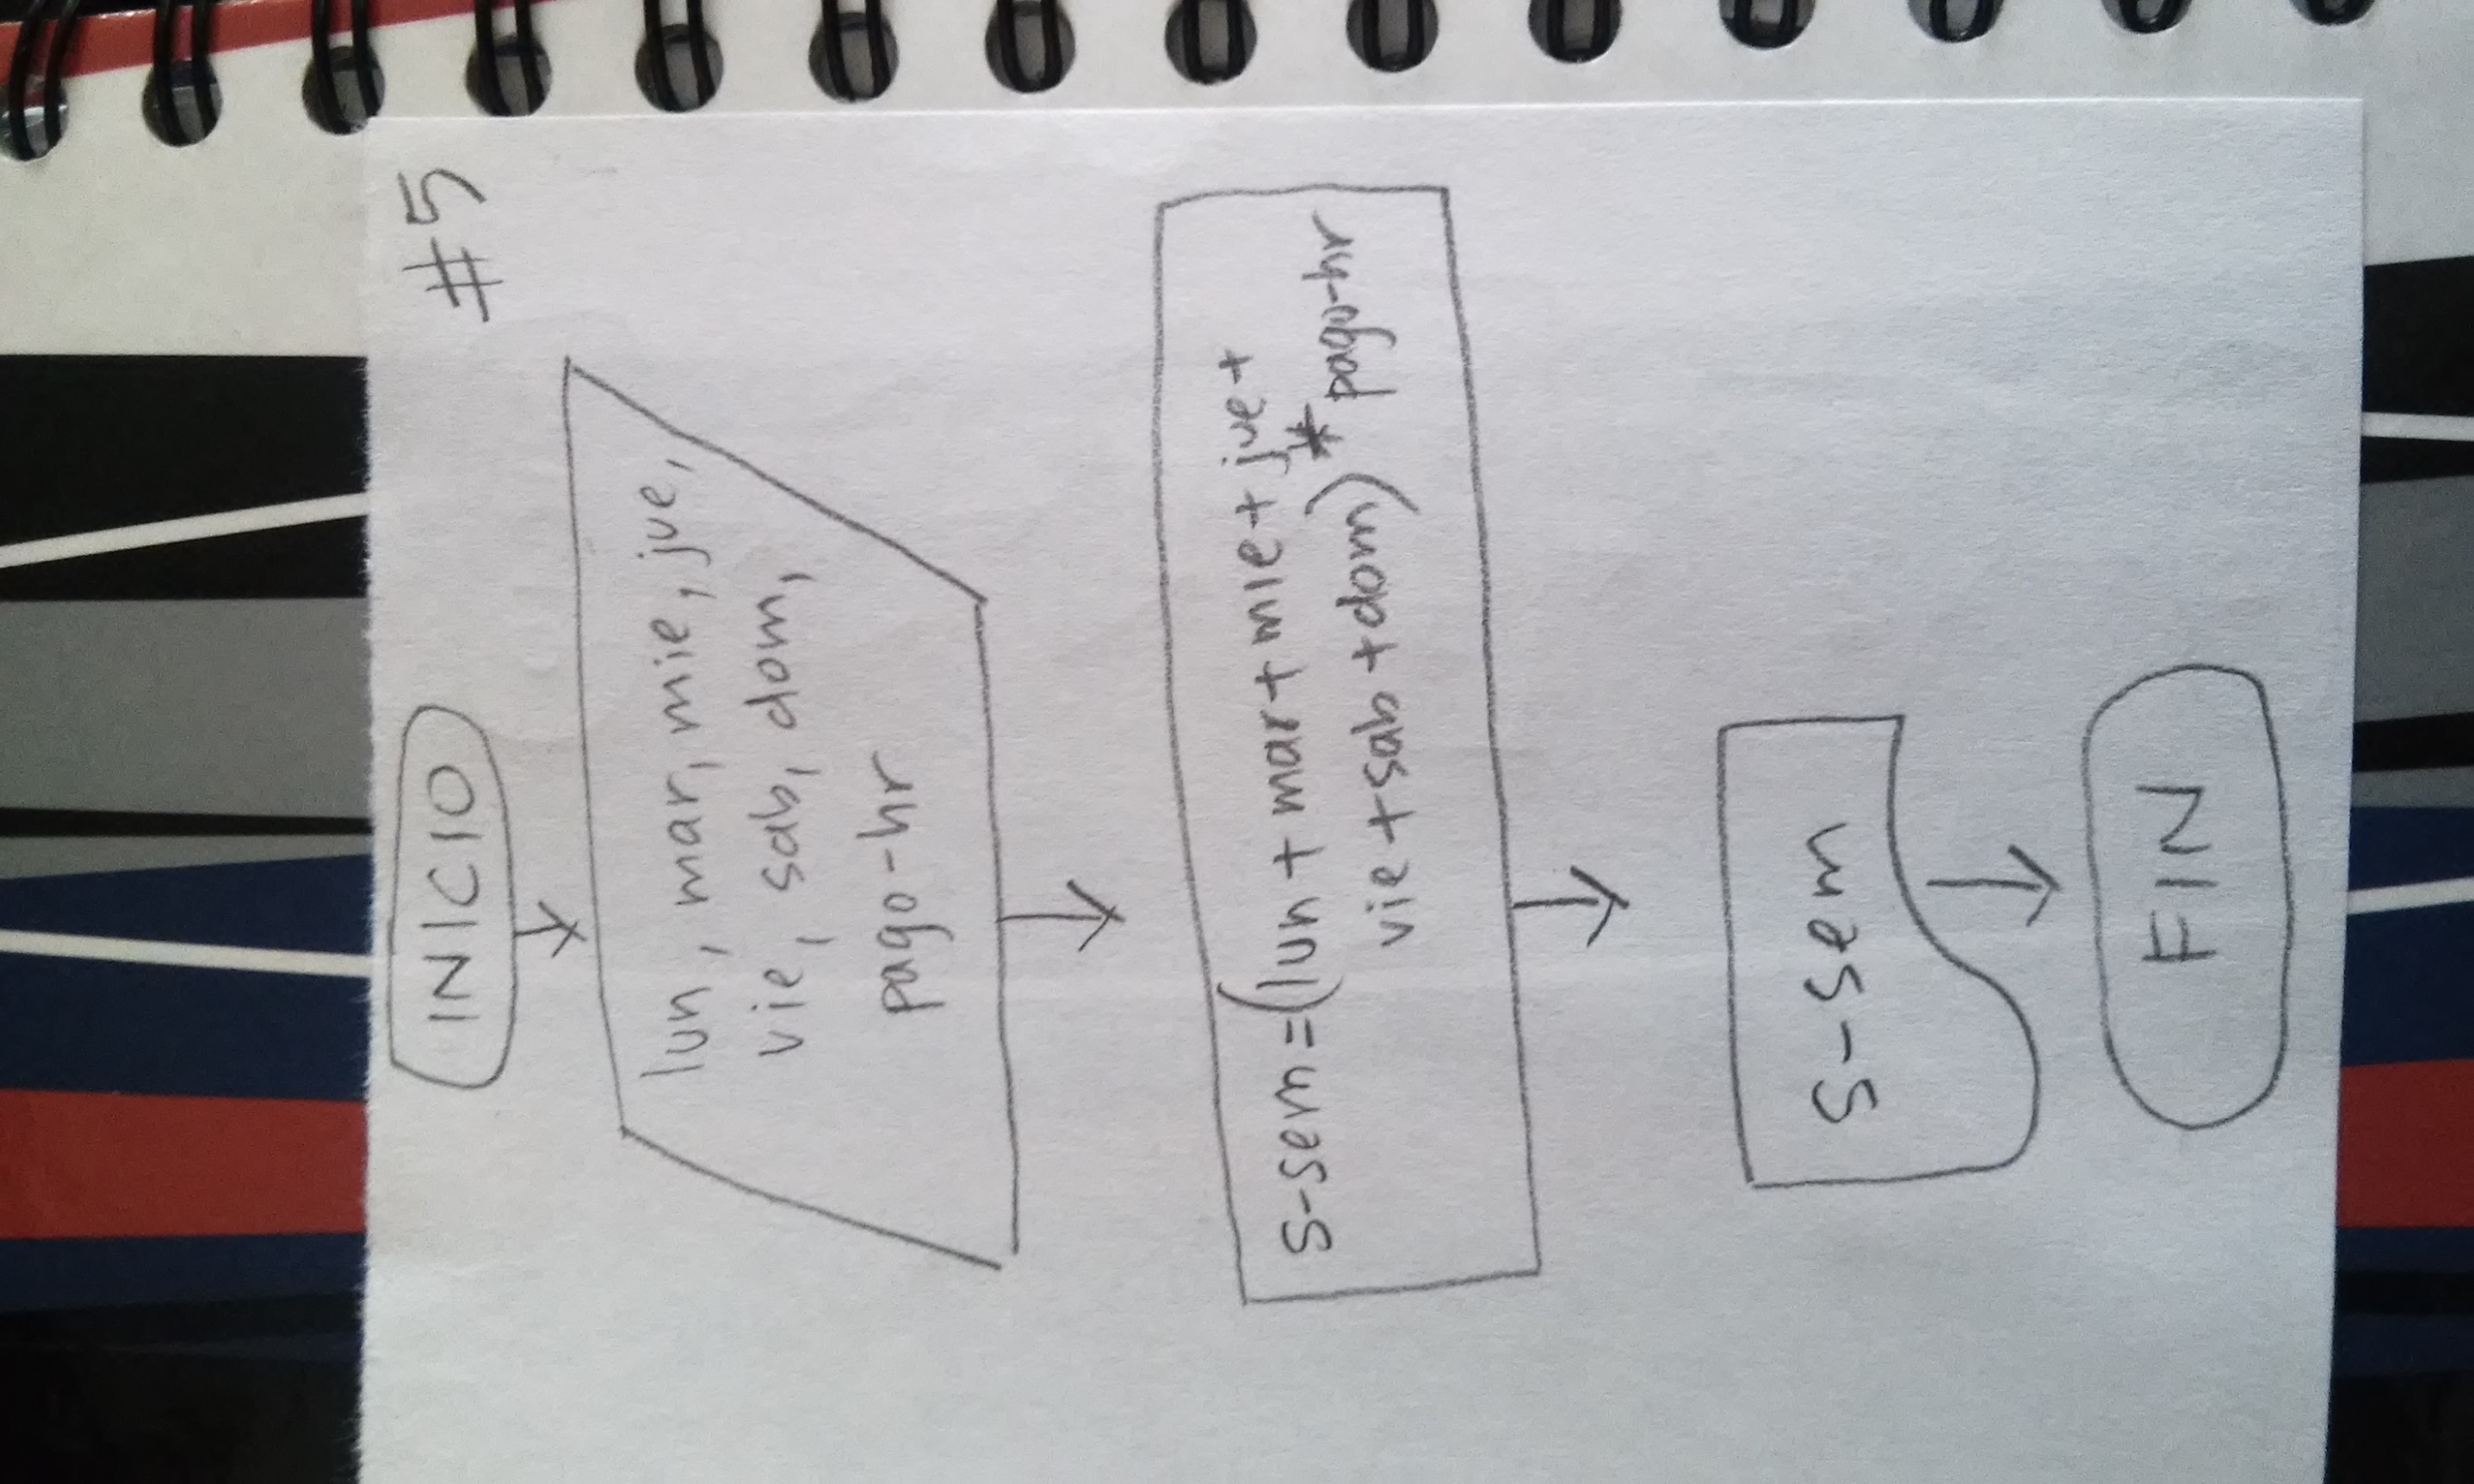 INICIO
#5
lun, mar, mie, jue,
vie, sab, dom,
pago-hr
s-sem=(lun + mar + mie + jue +
vie + sab + dom) * pago-hr
s-sem
FIN